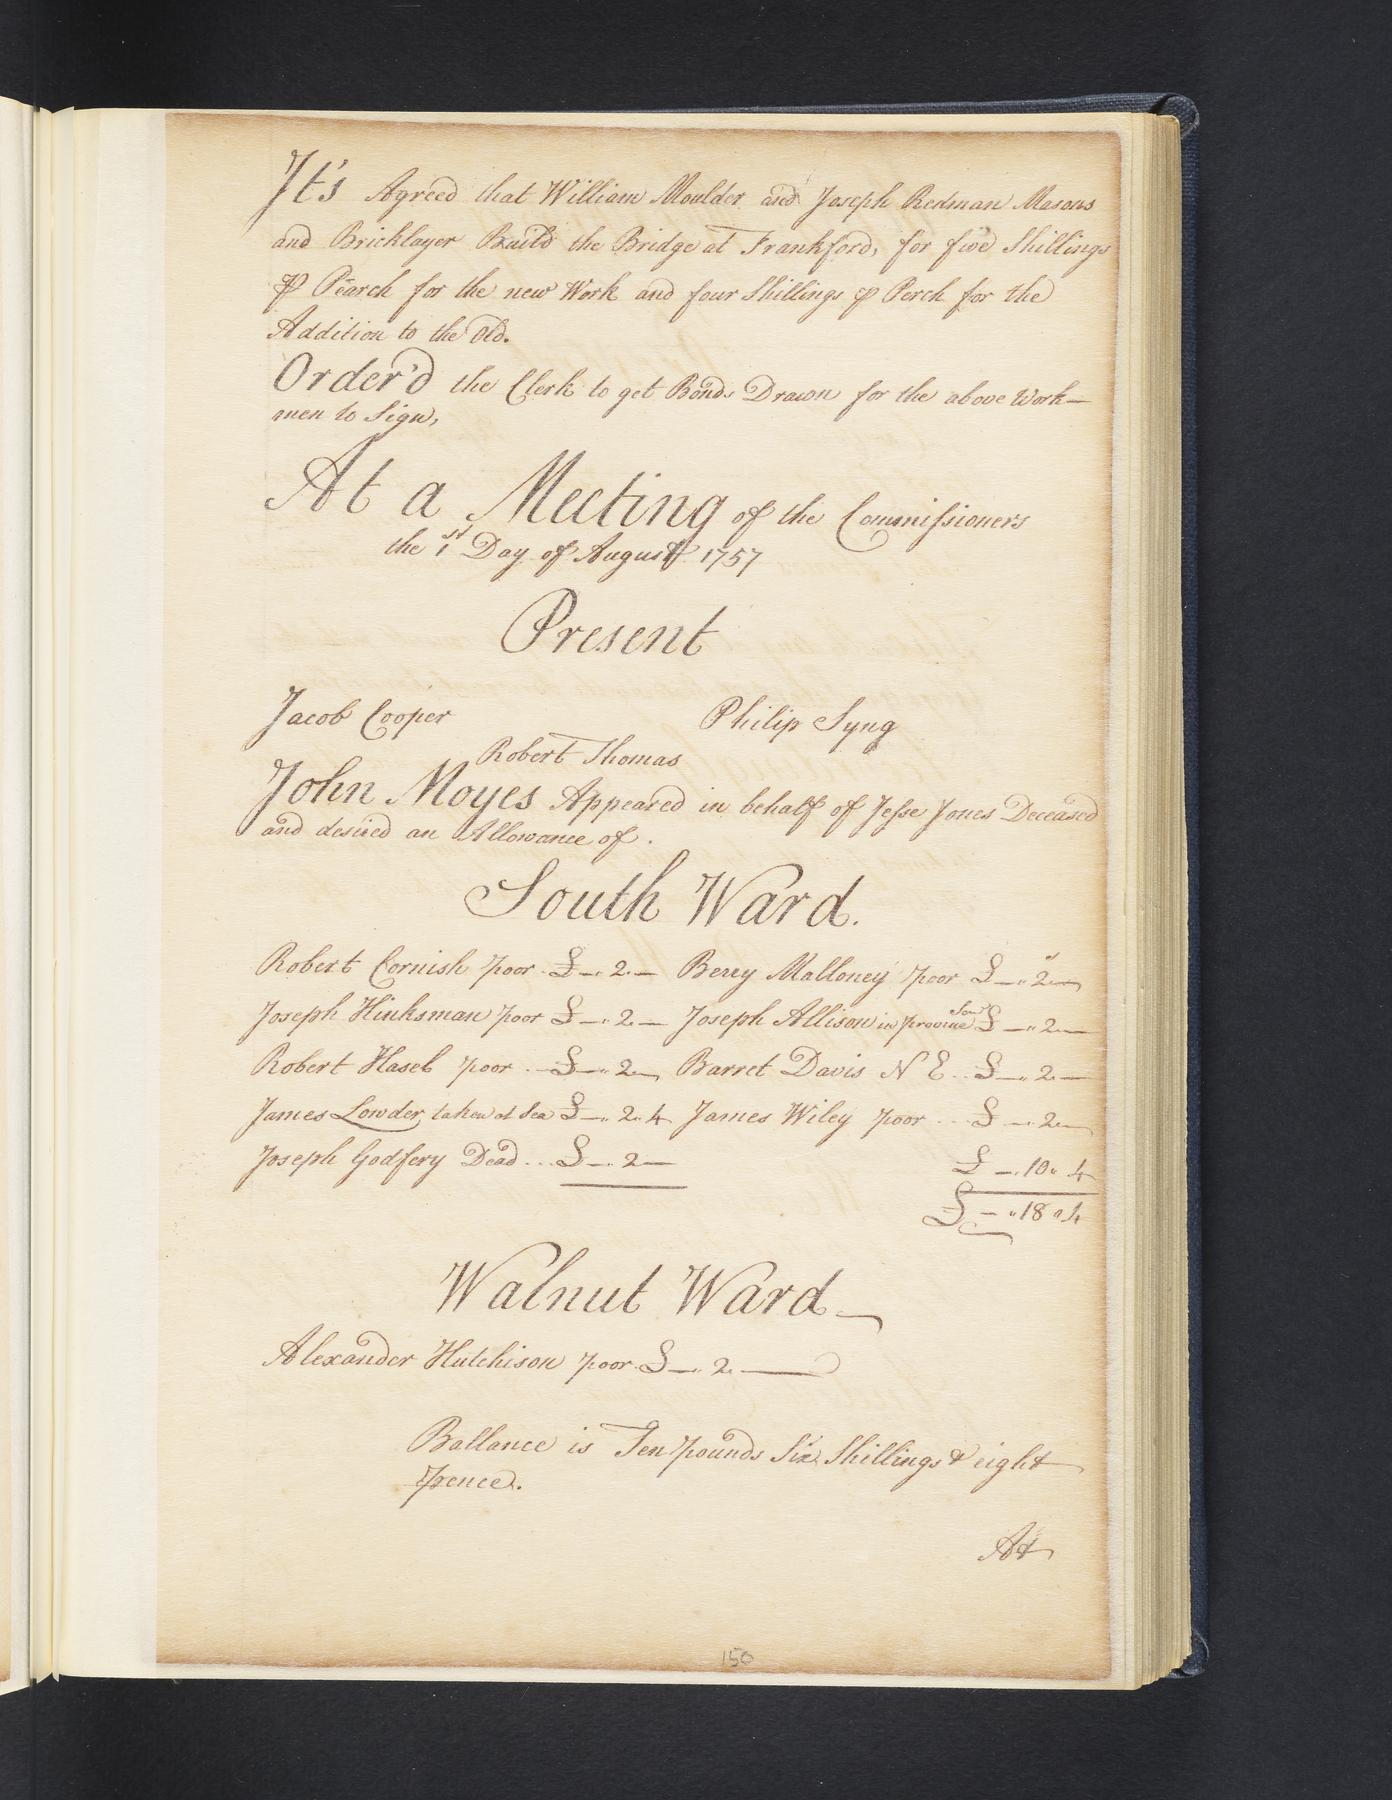 It's Agreed that William Moulder and Joseph Redman Masons
and Bricklayer Build the Bridge at Frankford, for five Shillings
⅌ Pearch for the new Work and four Shillings ⅌ Perch for the
Addition to the Old.
Order'd the Clerk to get Bonds Drawn for the above Work—
men to Sign,
At a Meeting of the Commissioners
the 1st Day of August 1757
Present
Jacob Cooper Philip Syng
Robert Thomas
John Moyes Appeared in behalf of Jesse Jones Deceased
and desired an Allowance of .
South Ward.
Robert Cornish poor . £ —. 2. — Berry Malloney poor £ — " 2 —
Joseph Hinksman poor £ —. 2 — Joseph Allison in provine Serv £ — " 2 —
Robert Hasel poor . . £ — " 2 — Barret Davis N E . . £ — " 2 —
James Lowder taken at Sea £ —. 2. 4 James Wiley poor . . . £ — 2 —
Joseph Godfery Dead . . . £ —. 2 — £ —. 10 " 4
£ — " 18 " 4
Walnut Ward —
Alexander Hutchison poor . £ —. 2. —
Ballance is Ten pounds Six Shillings & eight
pence.
At
150